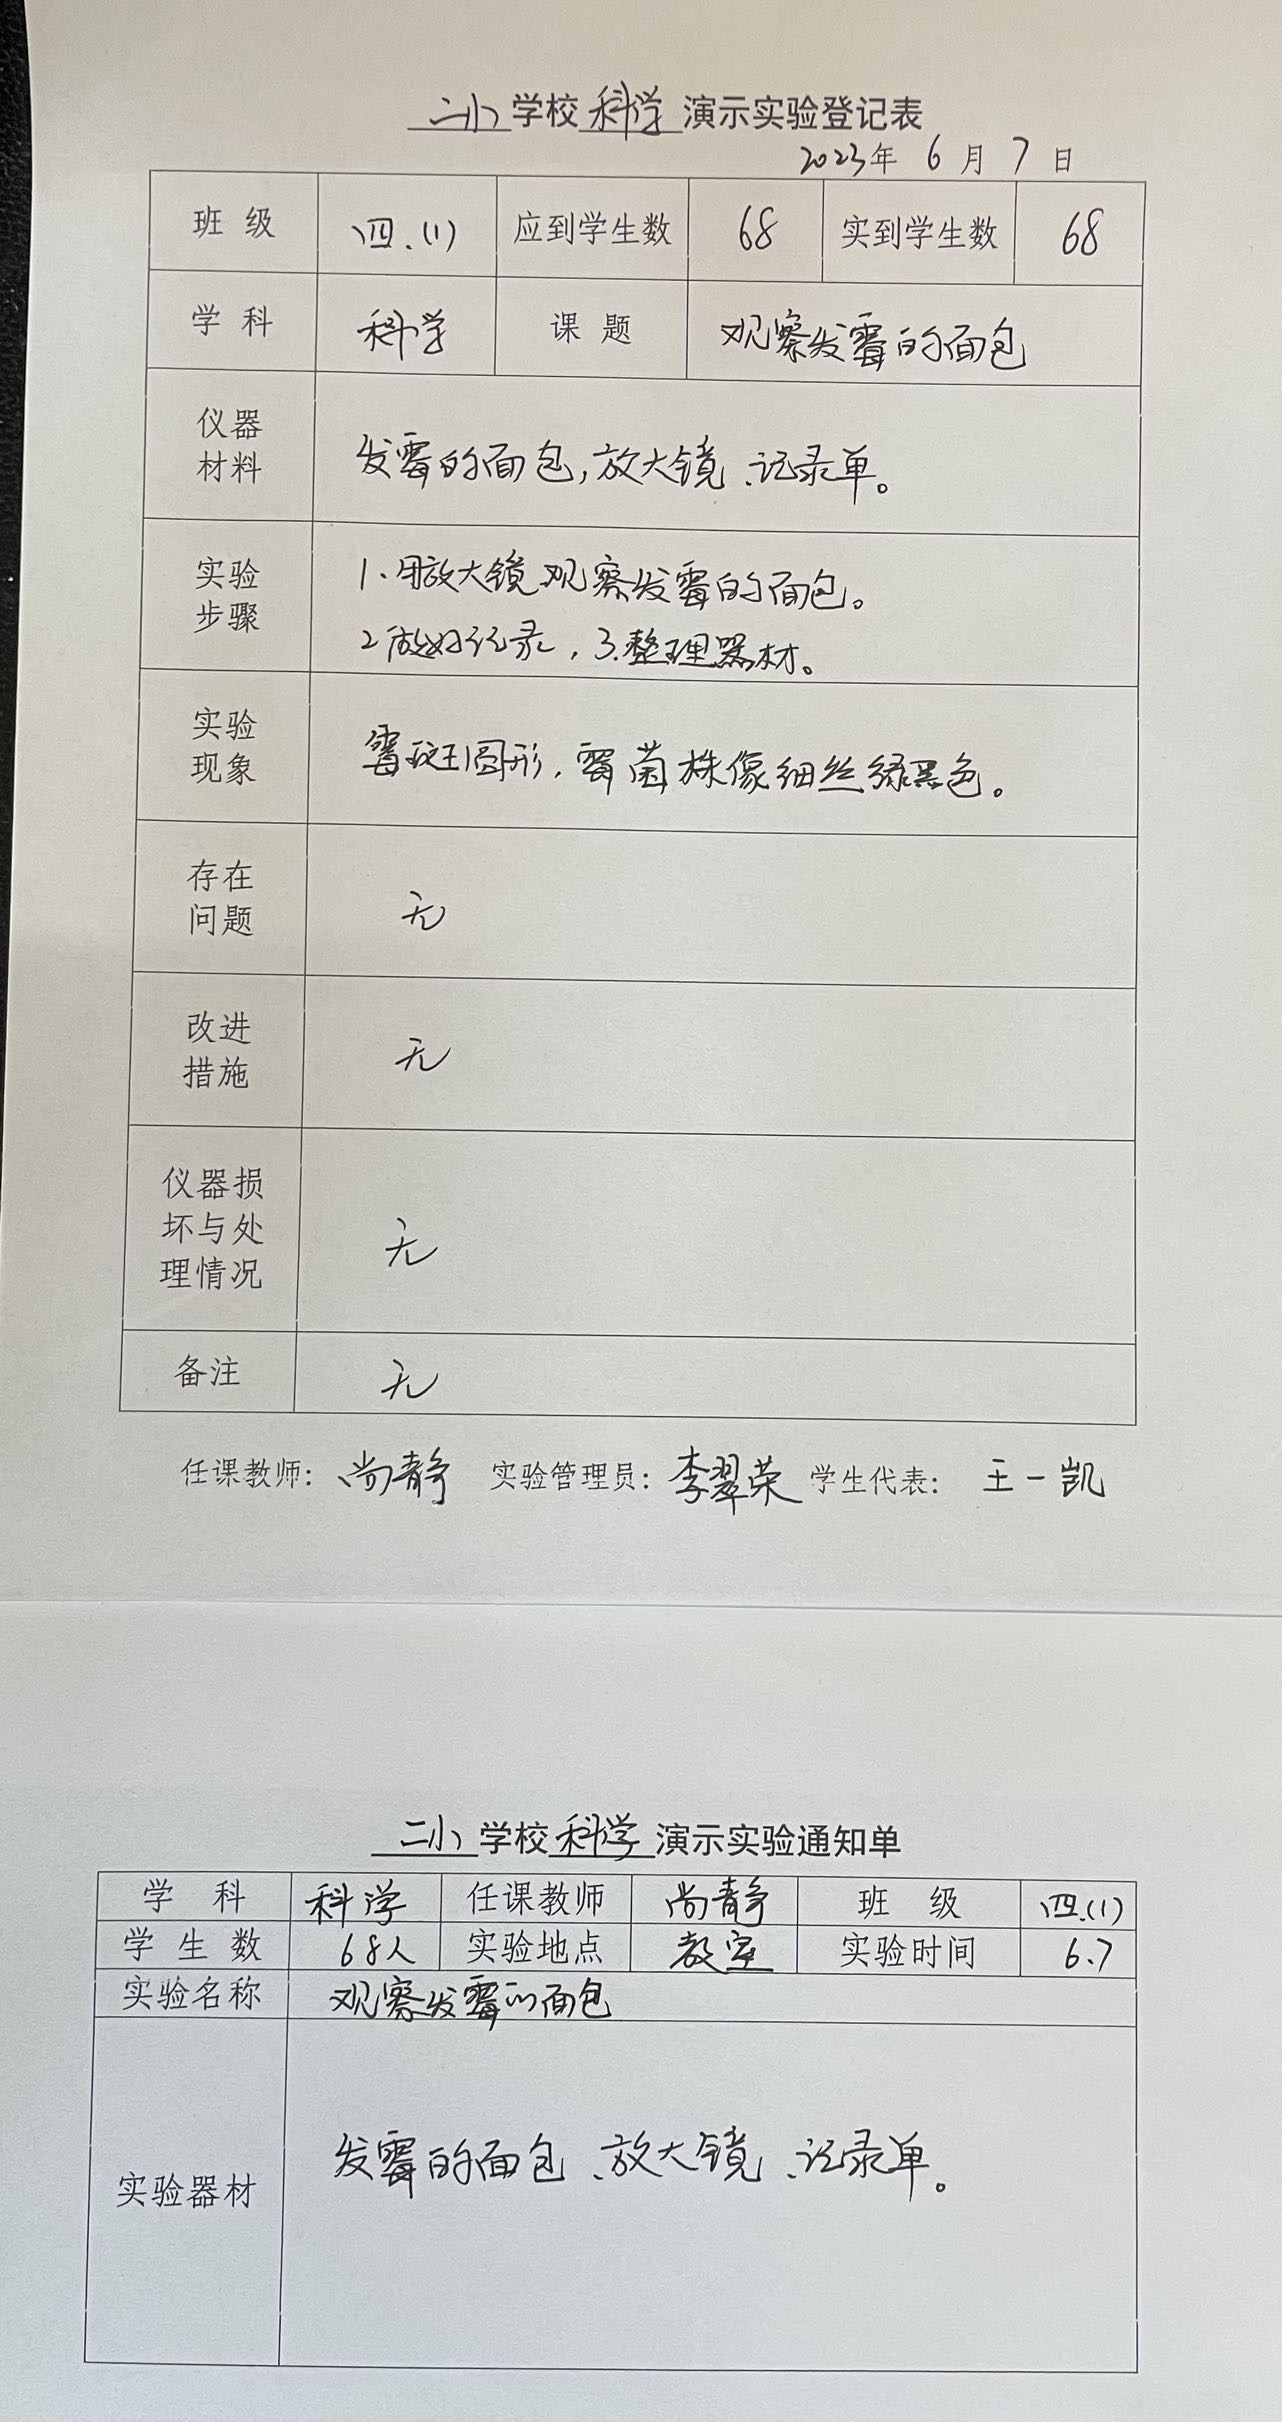 二小学校科学演示实验登记表
2023年 6 月 7 日
班 级 四.(1) 应到学生数 68 实到学生数 68
学 科 科学 课 题 观察发霉的面包
仪器
材料
发霉的面包,放大镜、记录单。
实验
步骤
1、用放大镜观察发霉的面包。
2做好记录,3.整理器材。
实验
现象
霉斑圆形,霉菌株像细丝绿黑色。
存在
问题
无
改进
措施
无
仪器损
坏与处
理情况
无
备注 无
任课教师: 尚静 实验管理员: 李翠荣 学生代表: 王一凯
二小学校科学演示实验通知单
学 科 科学 任课教师 尚静 班 级 四.(1)
学 生 数 68人 实验地点 教室 实验时间 6.7
实验名称 观察发霉的面包
实验器材 发霉的面包、放大镜、记录单。